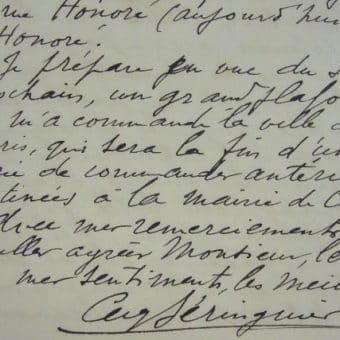 rue Honoré (aujourd'hui
Honoré.
Je prépare en vue du s
ochain, un grand plafo
m'a commandé la ville d
ris, qui sera la fin d'un
rie de commandes antéri
tinées à la mairie de C
Avec mes remerciements
uillez agréer Monsieur, le
mes sentiments, les meil
Aug Séringuier